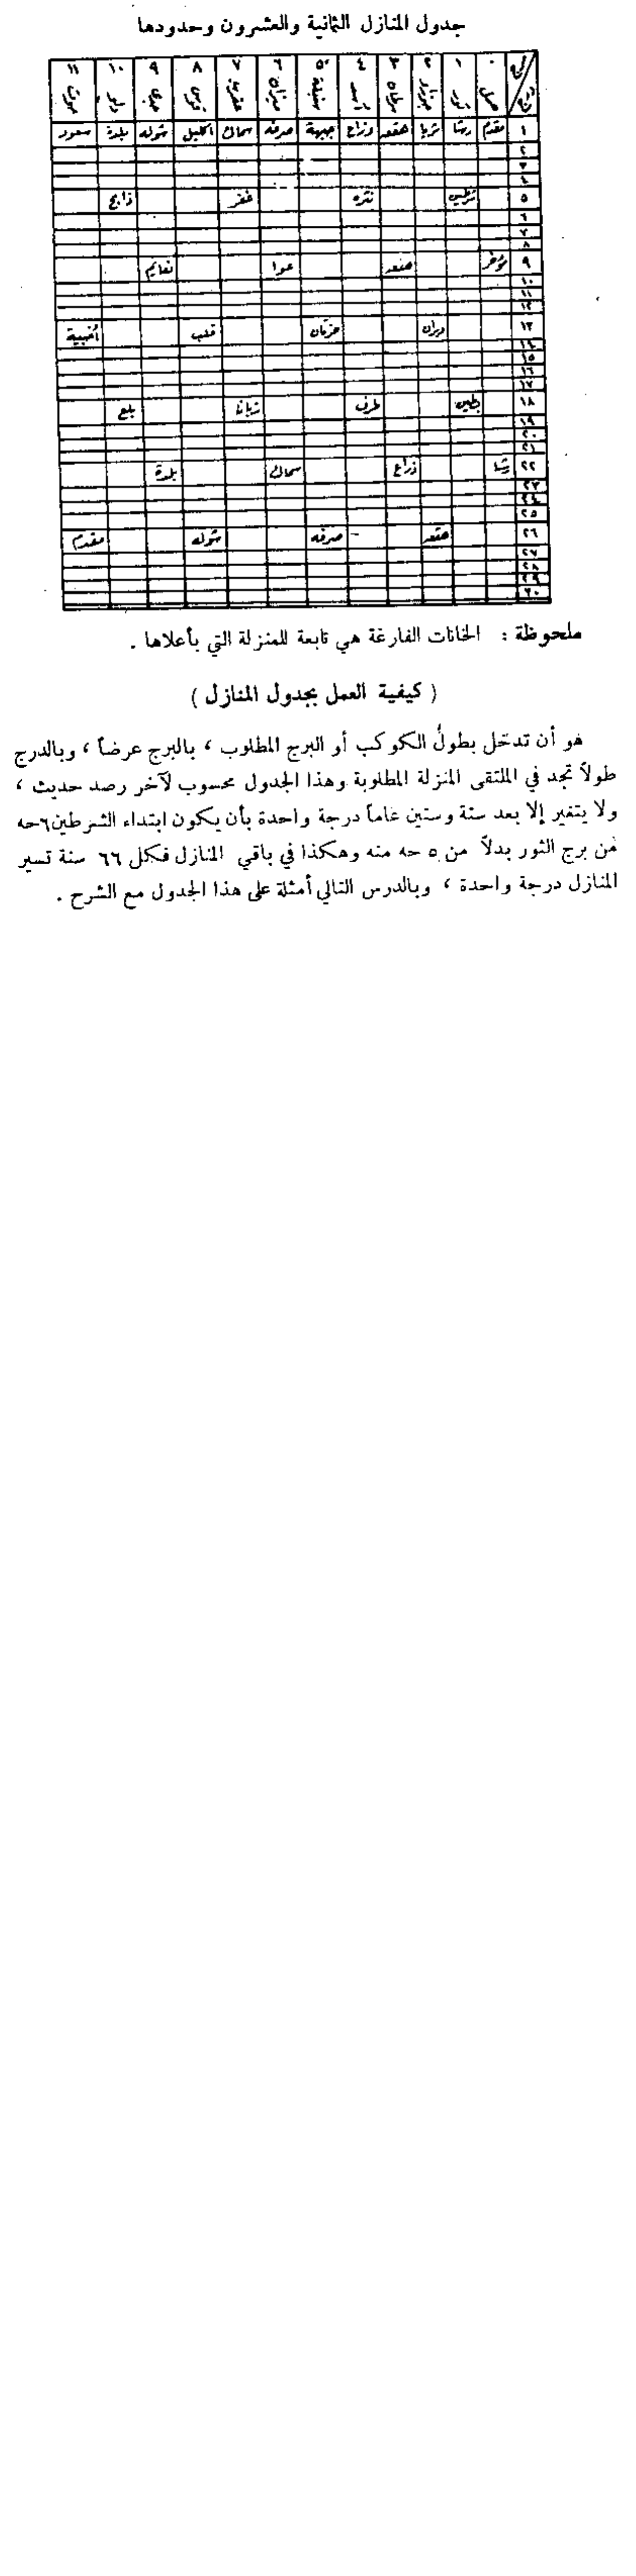 جدول المنازل الثانية والعشرون وحدودها
٠ ١ ٢ ٣ ٤ ٥ ٦ ٧ ٨ ٩ ١٠ ١١
حمل ثور جوزاء سرطان أسد سنبلة ميزان عقرب قوس جدي دلو حوت
١ مقدم رشا ثريا هقعه ذراع جبهة صرفه سماك اكليل شوله بلدة سعود
٢
٣
٤
٥ شرطين نثره غفر ذابح
٦
٧
٨
٩ مؤخر هنعه عوا نعايم
١٠
١١
١٢
١٣ دبران خرتان قلب أخبية
١٤
١٥
١٦
١٧
١٨ بطين طرف زبانا بلع
١٩
٢٠
٢١
٢٢ رشا ذراع سماك بلدة
٢٣
٢٤
٢٥
٢٦ هقعه صرفه شوله مقدم
٢٧
٢٨
٢٩
٣٠
ملحوظة : الخانات الفارغة هي تابعة للمنزلة التي بأعلاها .
( كيفية العمل بجدول المنازل )
هو أن تدخل بطول الكوكب أو البرج المطلوب ، بالبرج عرضاً ، وبالدرج
طولاً تجد في الملتقى المنزلة المطلوبة وهذا الجدول محسوب لآخر رصد حديث ،
ولا يتغير إلا بعد ستة وستين عاماً درجة واحدة بأن يكون ابتداء الشرطين ٦حه
من برج الثور بدلاً من ٥ حه منه وهكذا في باقي المنازل فكل ٦٦ سنة تسير
المنازل درجة واحدة ، وبالدرس التالي أمثلة على هذا الجدول مع الشرح .